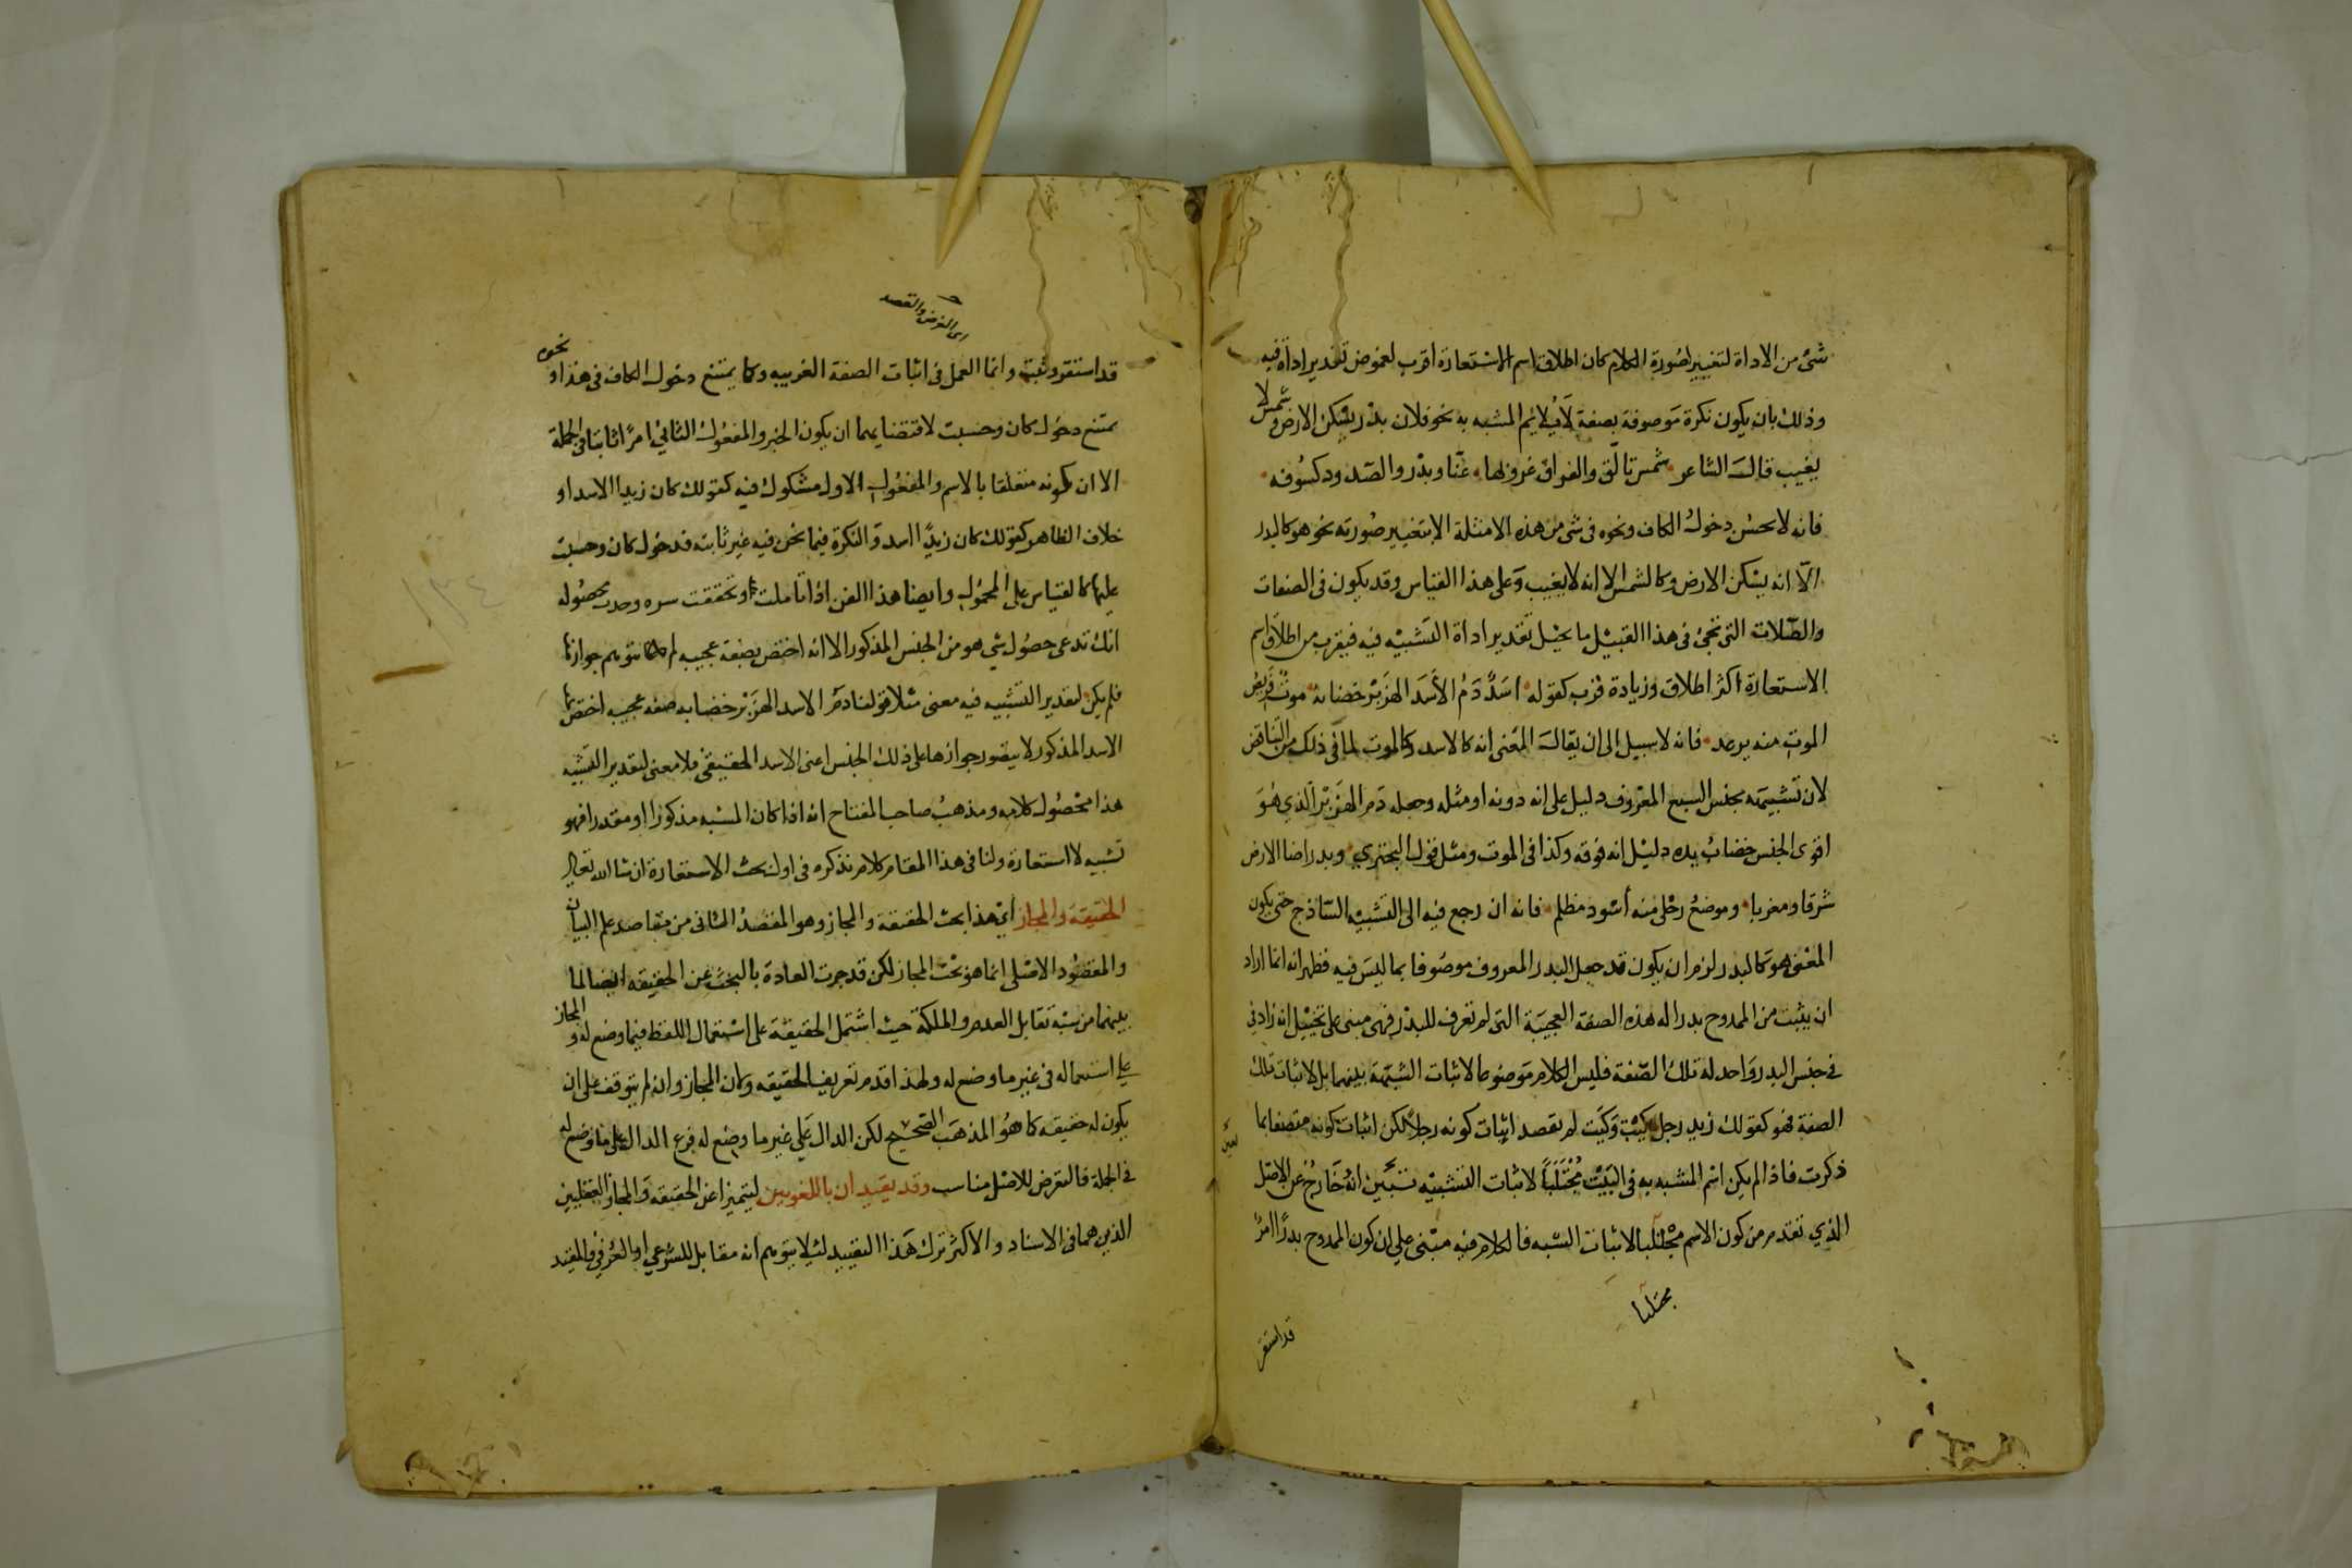 شئ من الاداة لتغيير لصورة الكلام كان اطلاق اسم الاستعارة اقرب لغموض تقدير اداة فيه
وذلك بان يكون نكرة موصوفة بصفة لا يلائم المشبه به نحو فلان بدر يسكن الارض وشمس لا
يغيب قال الشاعر شمس تالق والفراق غروبها عنا وبدر والصدود كسوفه
فانه لا يحسن دخول الكاف ونحوه فى شئ من هذه الامثلة الا بتغيير صورته نحو هو كالبدر
الا انه يسكن الارض وكالشمس الا انه لا يغيب وعلى هذا القياس وقد يكون فى الصفات
والصلات التى تجئ فى هذا القبيل ما يحيل تقدير اداة التشبيه فيه فيقرب من اطلاق اسم
الاستعارة اكثر اطلاق وزيادة قرب كقوله اسد دم الأسد الهزبر خضابه موت فريص
الموت منه يرعد فانه لا سبيل الى ان يقال المعنى انه كالاسد وكالموت لما فى ذلك من التناقض
لان تشبيهه بجنس السبع المعروف دليل على انه دونه او مثله وجعله دم الهزبر الذى هو
اقوى الجنس خضاب يده دليل انه فوقه وكذا فى الموت ومثل قول البحتري وبدر اضا الارض
شرقا ومغربا وموضع رحلى منه أسود مظلم فانه ان رجع فيه الى التشبيه الساذج حتى يكون
المعنى هو كالبدر لزم ان يكون قد جعل البدر المعروف موصوفا بما ليس فيه فظهر انه انما اراد
ان يثبت من الممدوح بدرا له هذه الصفة العجيبة التى لم تعرف للبدر فهى مبنى على تخييل انه زاد فى
فى جنس البدر واحد له تلك الصفة فليس الكلام موضوعا لاثبات الشبه بينهما بل لاثبات تلك
الصفة فهو كقولك زيد رجل كيت وكيت لم تقصد اثبات كونه رجلا لكن اثبات كونه متصفا بما
ذكرت فاذا لم يكن اسم المشبه به فى البيت مجتلبا لاثبات التشبيه تبين انه خارج عن الاصل
الذي تقدم من كون الاسم مجتلبا لاثبات الشبه فالكلام فيه مبنى على ان كون الممدوح بدرا امر
مجتلبا
قد استقر
اى الغرض والقصد
قد استقر وثبت وانما العمل فى اثبات الصفة الغريبه وكما يمتنع دخول الكاف فى هذا او نحوه
يمتنع دخول كان وحسبت لاقتضايهما ان يكون الخبر والمفعول الثانى امرا ثابتا فى الجملة
الا ان كونه متعلقا بالاسم والمفعول الاول مشكوك فيه كقولك كان زيدا الاسد او
خلاف الظاهر كقولك كان زيدا اسد والنكرة فيما نحن فيه غير ثابته فدخول كان وحسبت
عليها كالقياس على المجهول وايضا هذا الفن اذا تاملت وتحققت سره وجدت محصوله
انك تدعى حصول شئ هو من الجنس المذكور الا انه اختص بصفة عجيبه لم يتوهم جوازها
فلم يكن لتقدير التشبيه فيه معنى مثلا قولنا دم الاسد الهزبر خضابه صفه عجيبه اختص بها
الاسد المذكور لا يتصور جوازها على ذلك الجنس اعنى الاسد الحقيقى فلا معنى لتقدير التشبيه
هذا محصول كلامه ومذهب صاحب المفتاح انه اذا كان المشبه مذكورا او مقدرا فهو
تشبيه لا استعارة ولنا فى هذا المقام كلام نذكره فى اول بحث الاستعارة ان شا الله تعالى
الحقيقة والمجاز اي هذا بحث الحقيقة والمجاز وهو المقصد الثانى من مقاصد علم البيان
والمقصود الاصلى انما هو بحث المجاز لكن قد جرت العادة بالبحث عن الحقيقه ايضا لما
بينهما من شبه تقابل العدم والملكة حيث اشتمل الحقيقة على استعمال اللفظ فيما وضع له والمجاز
على استعماله فى غير ما وضع له ولهذا قدم تعريف الحقيقه وكان المجاز وان لم يتوقف على ان
يكون له حقيقه كما هو المذهب الصحيح لكن الدال على غير ما وضع له فرع الدال على ما وضع له
فى الجملة فالتعرض للاصل مناسب وقد يقيدان باللغويين ليتميزا عن الحقيقه والمجاز العقليين
الذين هما فى الاسناد والاكثر ترك هذا التقييد لئلا يتوهم انه مقابل للشرعي او العرفي والمقيد